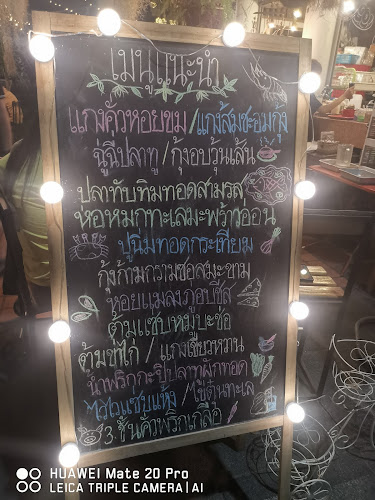 เมนูแนะนำ
แกงคั่วหอยขม/แกงส้มชะอมกุ้ง
ฉู่ฉี่ปลาทู/กุ้งอบวุ้นเส้น
ปลาทับทิมทอดสามรส
ห่อหมกทะเลมะพร้าวอ่อน
ปูนิ่มทอดกระเทียม
กุ้งก้ามกรามซอสมะขาม
หอยแมลงภู่อบชีส
ต้มแซ่บหมูบะช่อ
ต้มขาไก่ / แกงเขียวหวาน
น้ำพริกกะปิปลาทูผักทอด
ไวไวแซ่บแห้ง/ไข่ตุ๋นทะเล
3 ชั้นคั่วพริกเกลือ
HUAWEI Mate 20 Pro
LEICA TRIPLE CAMERA | AI